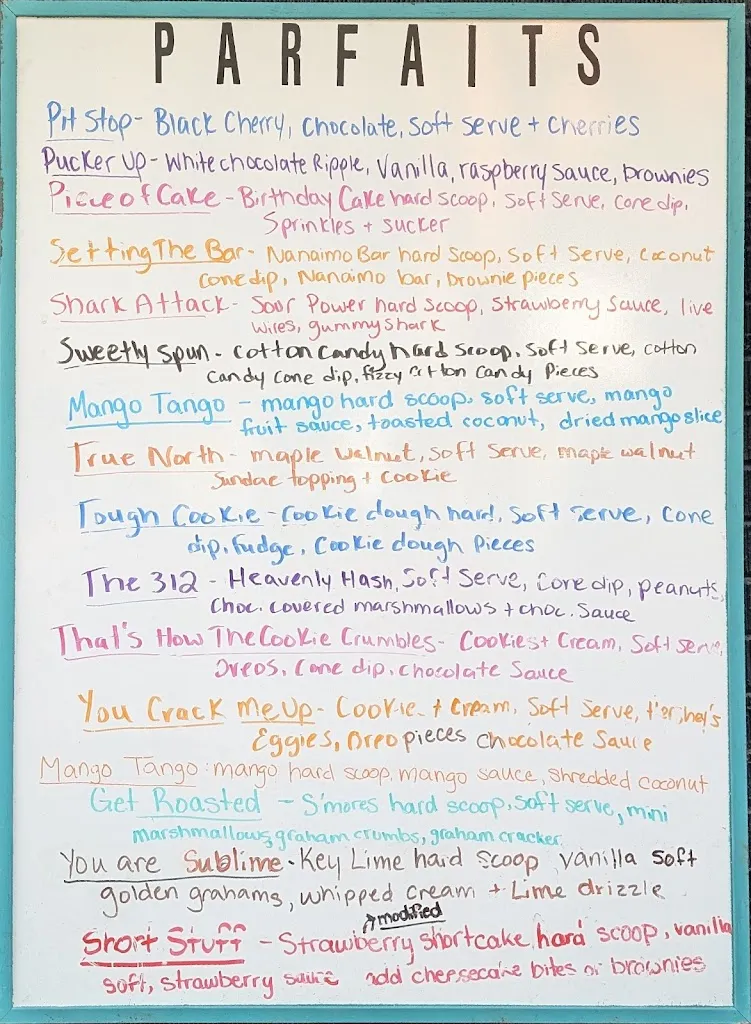 PARFAITS
Pit Stop - Black Cherry, Chocolate, Soft Serve + Cherries
Pucker Up - White chocolate Ripple, Vanilla, raspberry sauce, brownies
Piece of Cake - Birthday Cake hard scoop, Soft Serve, cone dip,
Sprinkles + sucker
Setting The Bar - Nanaimo Bar hard Scoop, Soft Serve, coconut
cone dip, Nanaimo bar, brownie pieces
Shark Attack - Sour Power hard scoop, Strawberry Sauce, live
wires, gummy shark
Sweetly Spun - cotton candy hard scoop, soft serve, cotton
candy cone dip, fizzy cotton candy pieces
Mango Tango - mango hard scoop, soft serve, mango
fruit sauce, toasted coconut, dried mango slice
True North - maple walnut, soft serve, maple walnut
Sundae topping + cookie
Tough Cookie - Cookie dough hard, Soft Serve, cone
dip, fudge, Cookie dough pieces
The 312 - Heavenly Hash, Soft Serve, Cone dip, peanuts,
Choc. covered marshmallows + choc. Sauce
That's How The Cookie Crumbles - Cookies + Cream, Soft serve,
Oreos, Cone dip, chocolate Sauce
You Crack Me Up - Cookie + Cream, Soft Serve, Hershey's
Eggies, Oreo pieces chocolate Sauce
Mango Tango: mango hard scoop, mango sauce, shredded coconut
Get Roasted - S'mores hard scoop, soft serve, mini
marshmallows, graham crumbs, graham cracker
You are Sublime - Key Lime hard scoop vanilla soft
golden grahams, whipped cream + Lime drizzle
modified
Short Stuff - Strawberry shortcake hard scoop, vanilla
soft, strawberry sauce add cheesecake bites or brownies